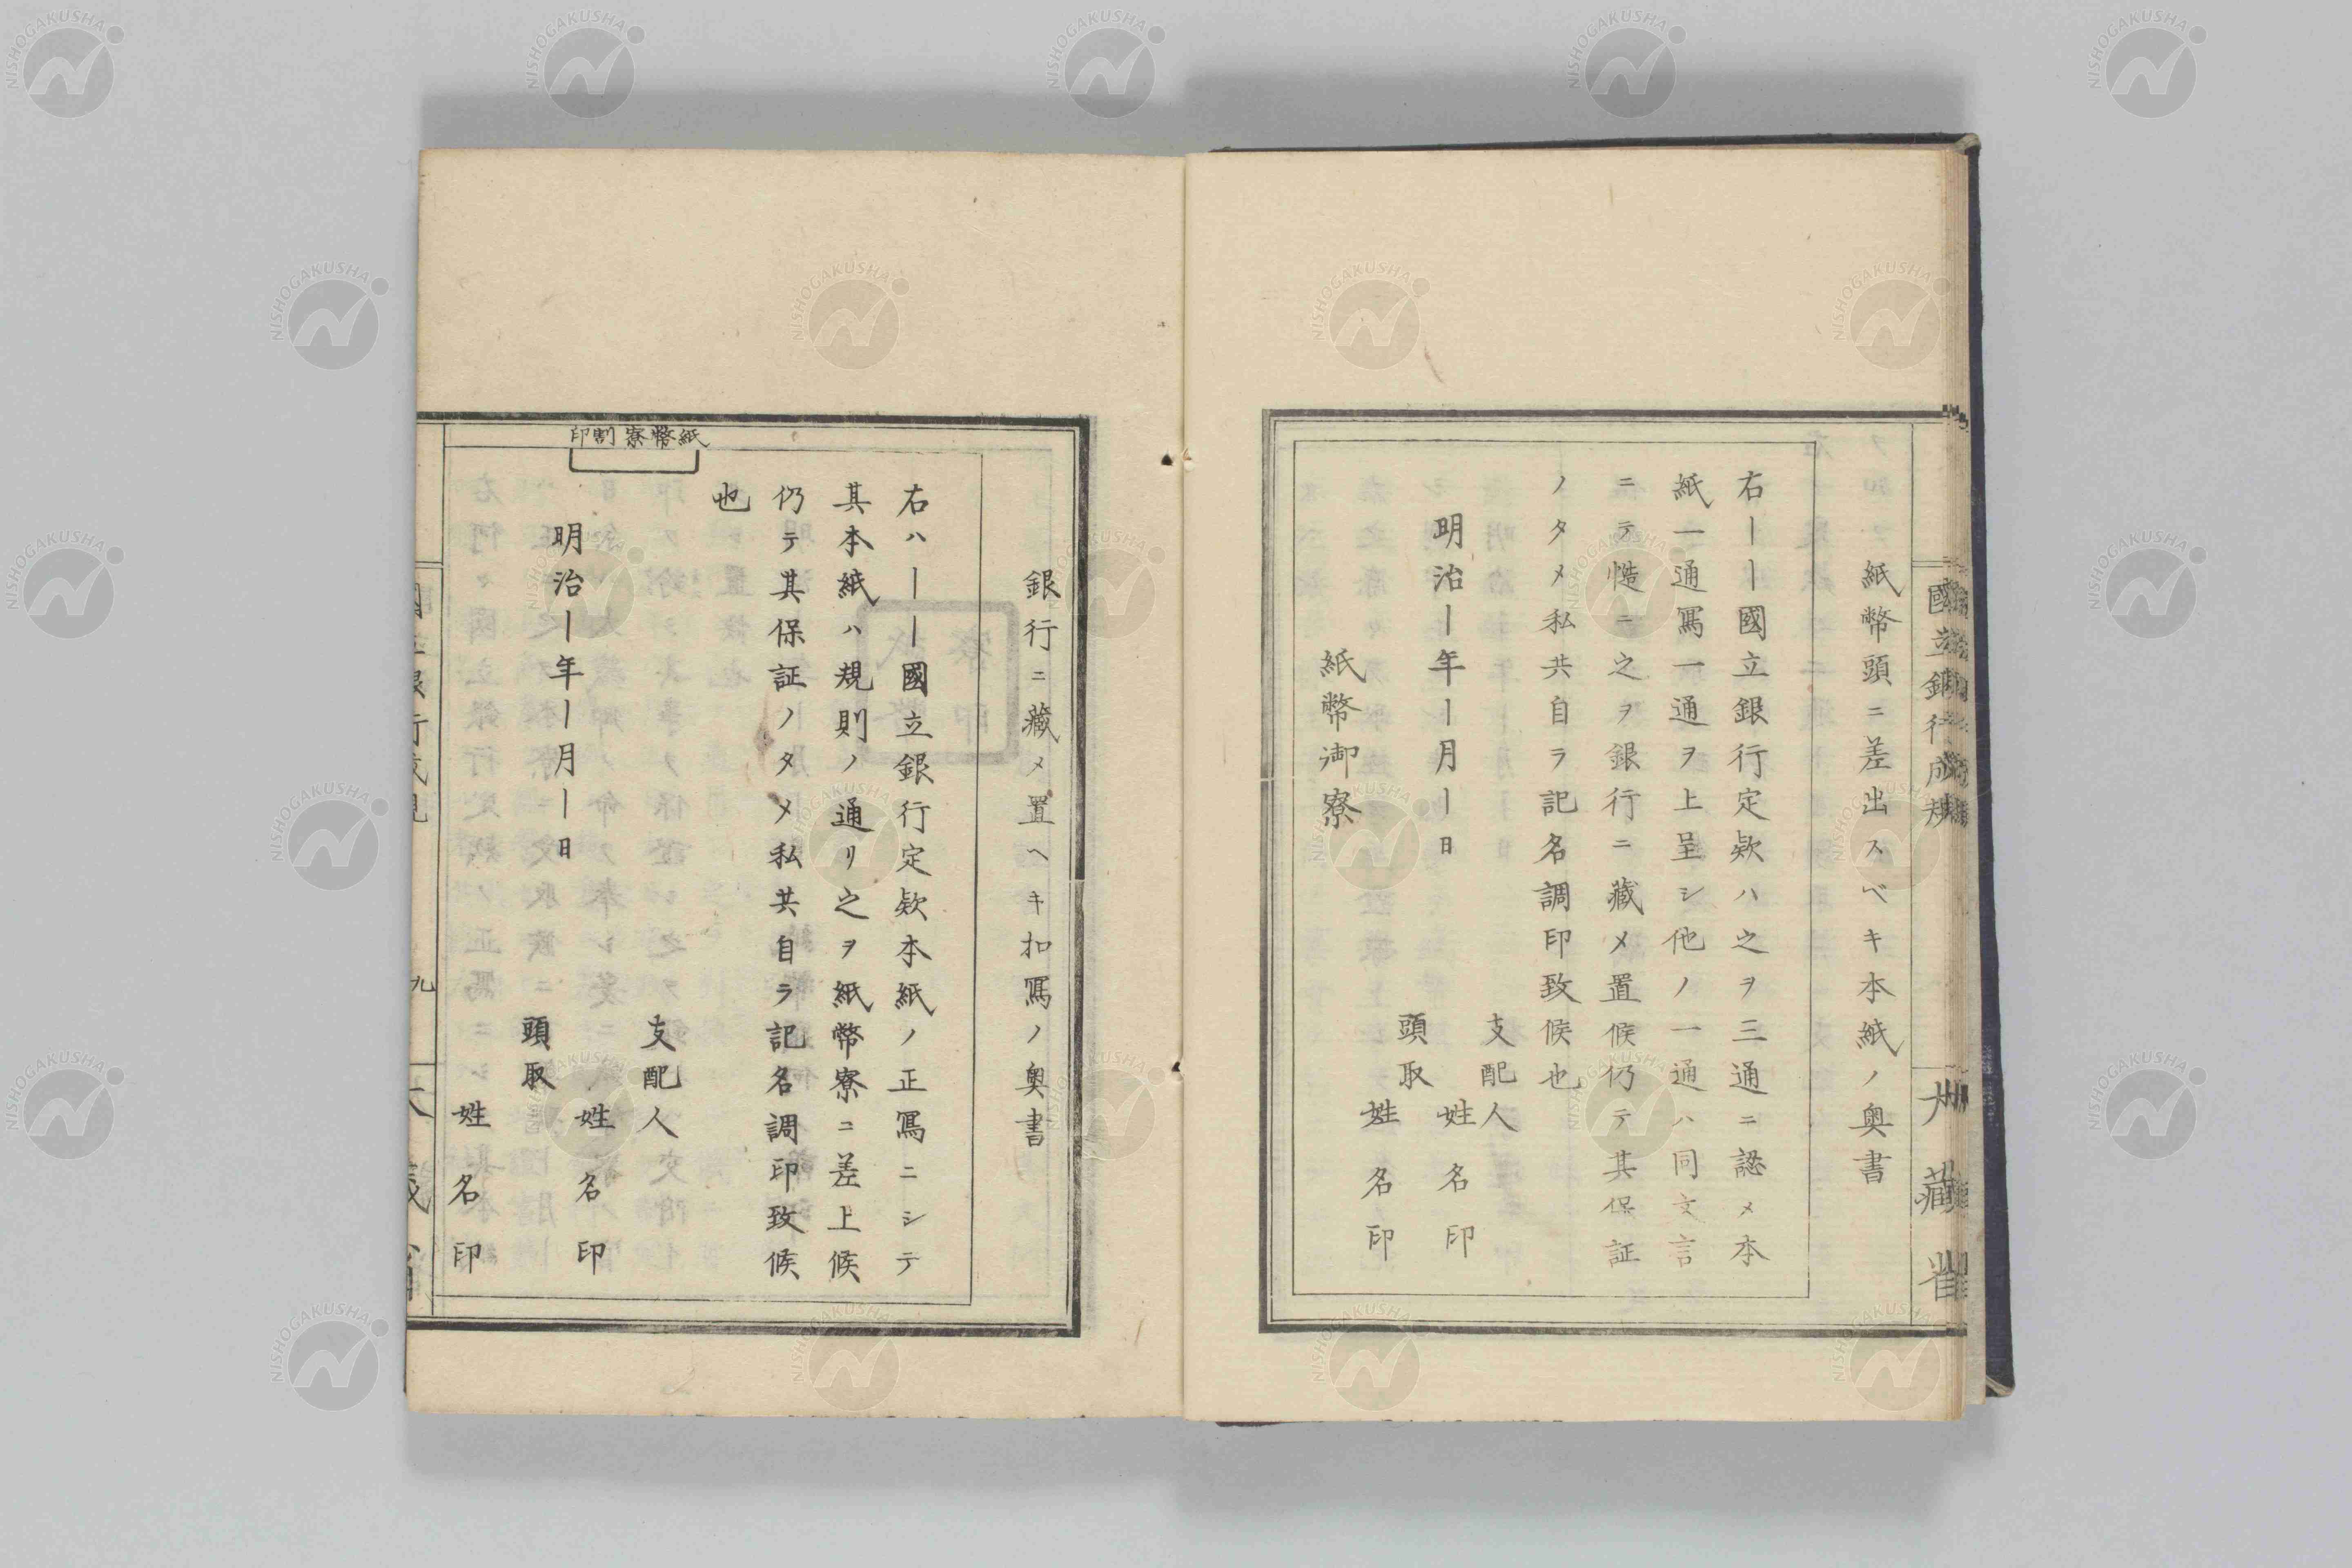 國立銀行成規
大藏省
紙幣頭ニ差出スベキ本紙ノ奥書
右〡〡國立銀行定欵ハ之ヲ三通ニ認メ本
紙一通寫一通ヲ上呈シ他ノ一通ハ同文言
ニテ慥ニ之ヲ銀行ニ藏メ置候仍テ其保証
ノタメ私共自ラ記名調印致候也
明治〡年〡月〡日
支配人
姓名印
頭取
姓名印
紙幣御寮
銀行ニ藏メ置ヘキ扣寫ノ奥書
右ハ〡〡國立銀行定欵本紙ノ正寫ニシテ
其本紙ハ規則ノ通リ之ヲ紙幣寮ニ差上候
仍テ其保証ノタメ私共自ラ記名調印致候
也
紙幣寮割印
明治〡年〡月〡日
支配人
姓名印
頭取
姓名印
九
NISHOGAKUSHA